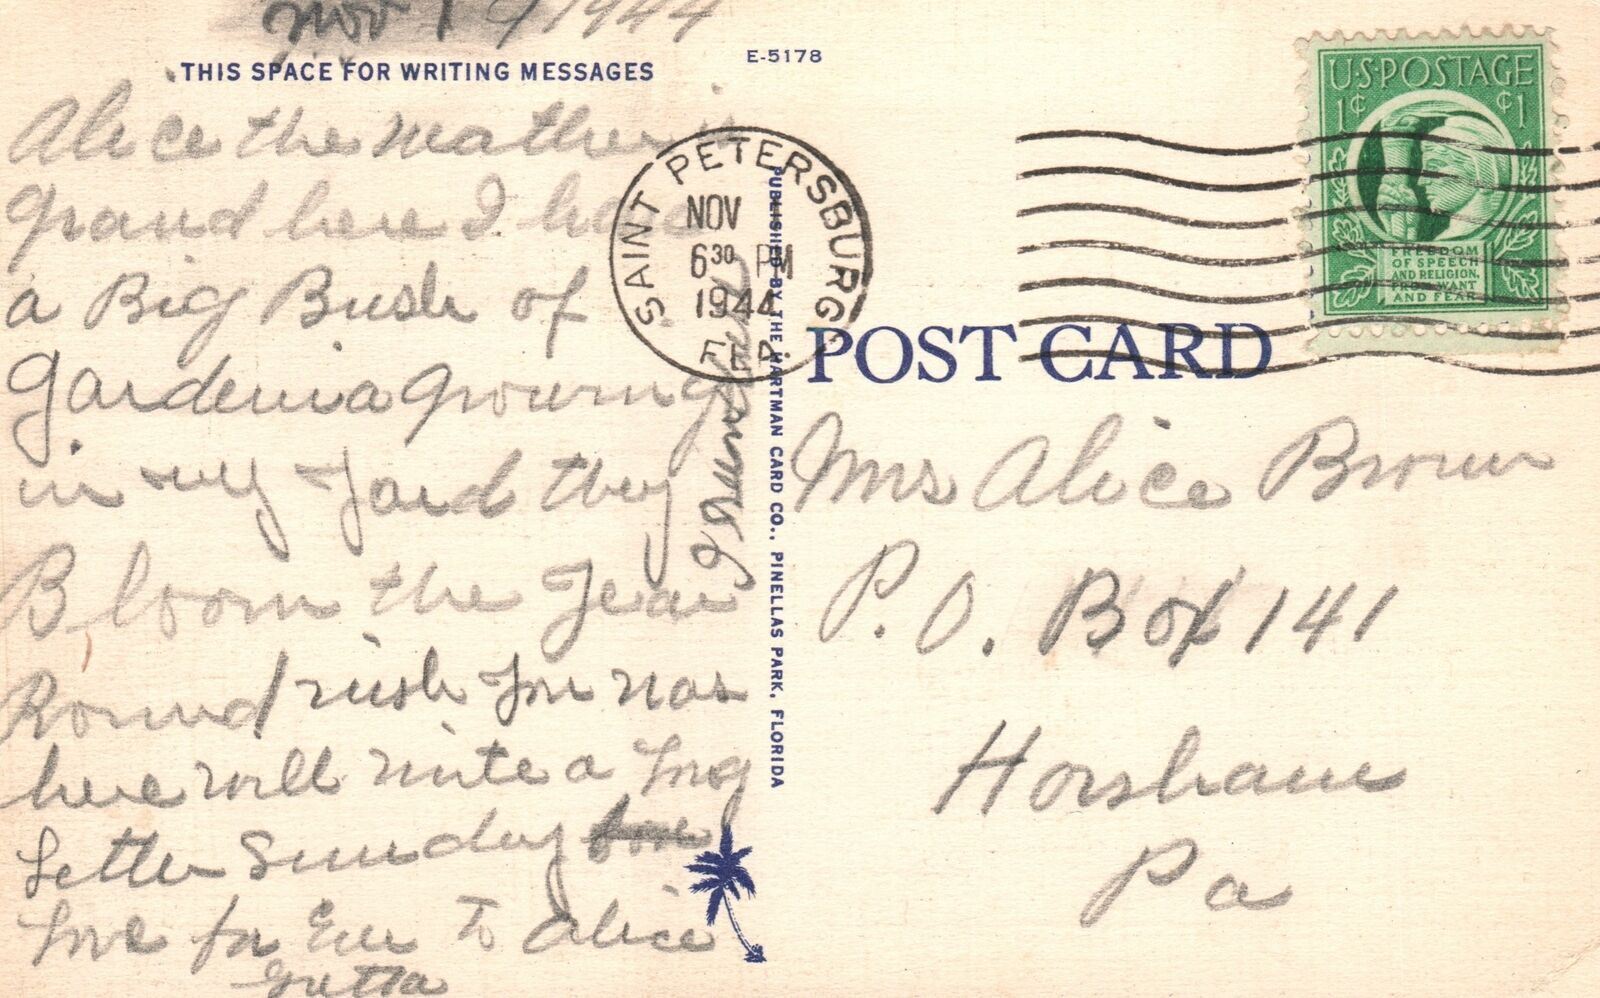 Nov 19 1944
THIS SPACE FOR WRITING MESSAGES
Alice the weather is
grand here I have
a Big Bush of
gardenia growing
in my Yard they
Bloom the Year
Round wish you was
here will write a long
Letter Sunday
Love for Ever To Alice
Gretta
E-5178
SAINT PETERSBURG
NOV
6 30 PM
1944
FLA.
PUBLISHED BY THE HARTMAN CARD CO., PINELLAS PARK, FLORIDA
U.S. POSTAGE
1¢ ¢1
FREEDOM
OF SPEECH
AND RELIGION,
FROM WANT
AND FEAR
POST CARD
Mrs Alice Brown
P.O. Box 141
Horsham
Pa